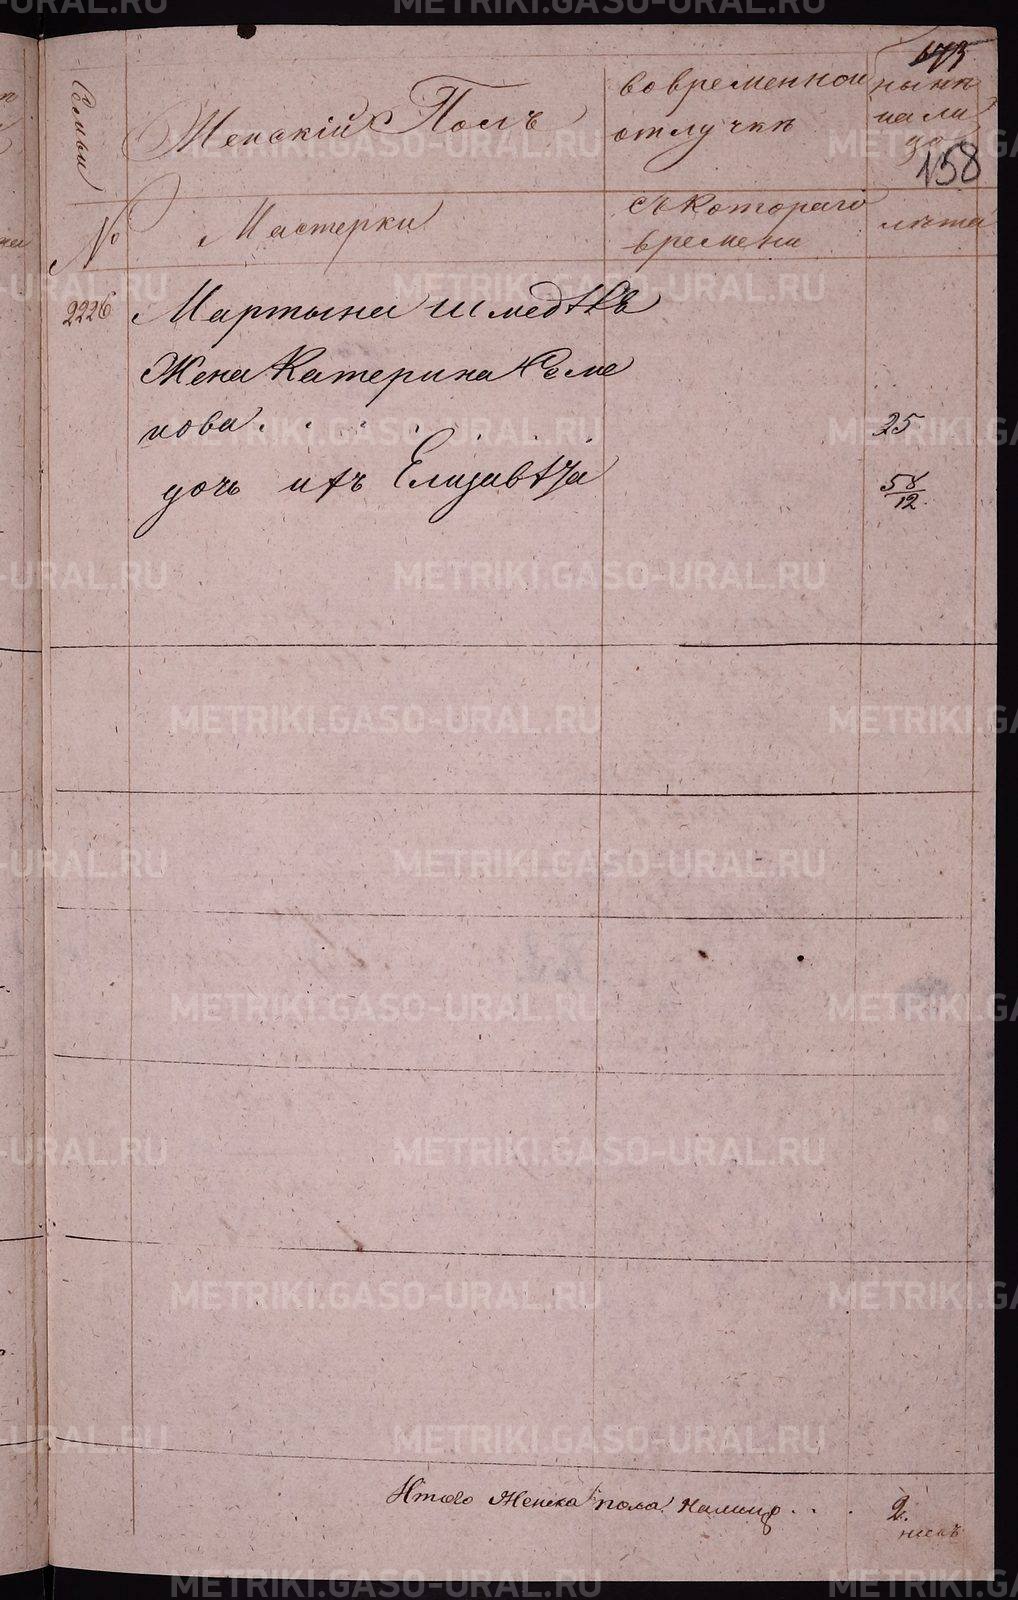 673
158
Семьи
Женскій Полъ
во временной
отлучкѣ
нынѣ
на ли
цо
№
Мастерки
съ котораго
времени
лѣта
2226
Мартына Шмедткъ
Жена Катерина Семе
нова
25
дочь ихъ Елизавета
5 8/12
Итого Женска пола налицо . . .
2.
METRIKI.GASO-URAL.RU